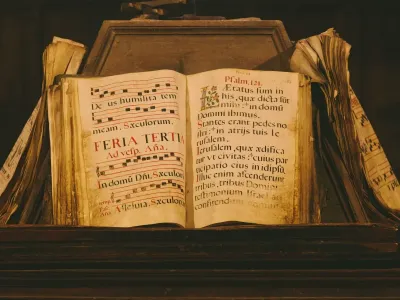 De us humilita tem
meam. Sæculorum.
FERIA TERTI
Ad vesp. Aña.
In domũ Dñi. Sæculoru
Sæculoru
Psalm. 121.
LÆtatus sum in
his, quæ dicta sũt
mihi: * in domũ
Domini ibimus.
Stantes erant pedes no
stri: * in atrijs tuis Ie
rusalem.
Ierusalem, quæ ædifica
tur vt civitas: * cuius par
ticipatio eius in idipsũ
Illuc enim ascenderunt
tribus, tribus Domini
testimonium Israel ad
confitendum nomini